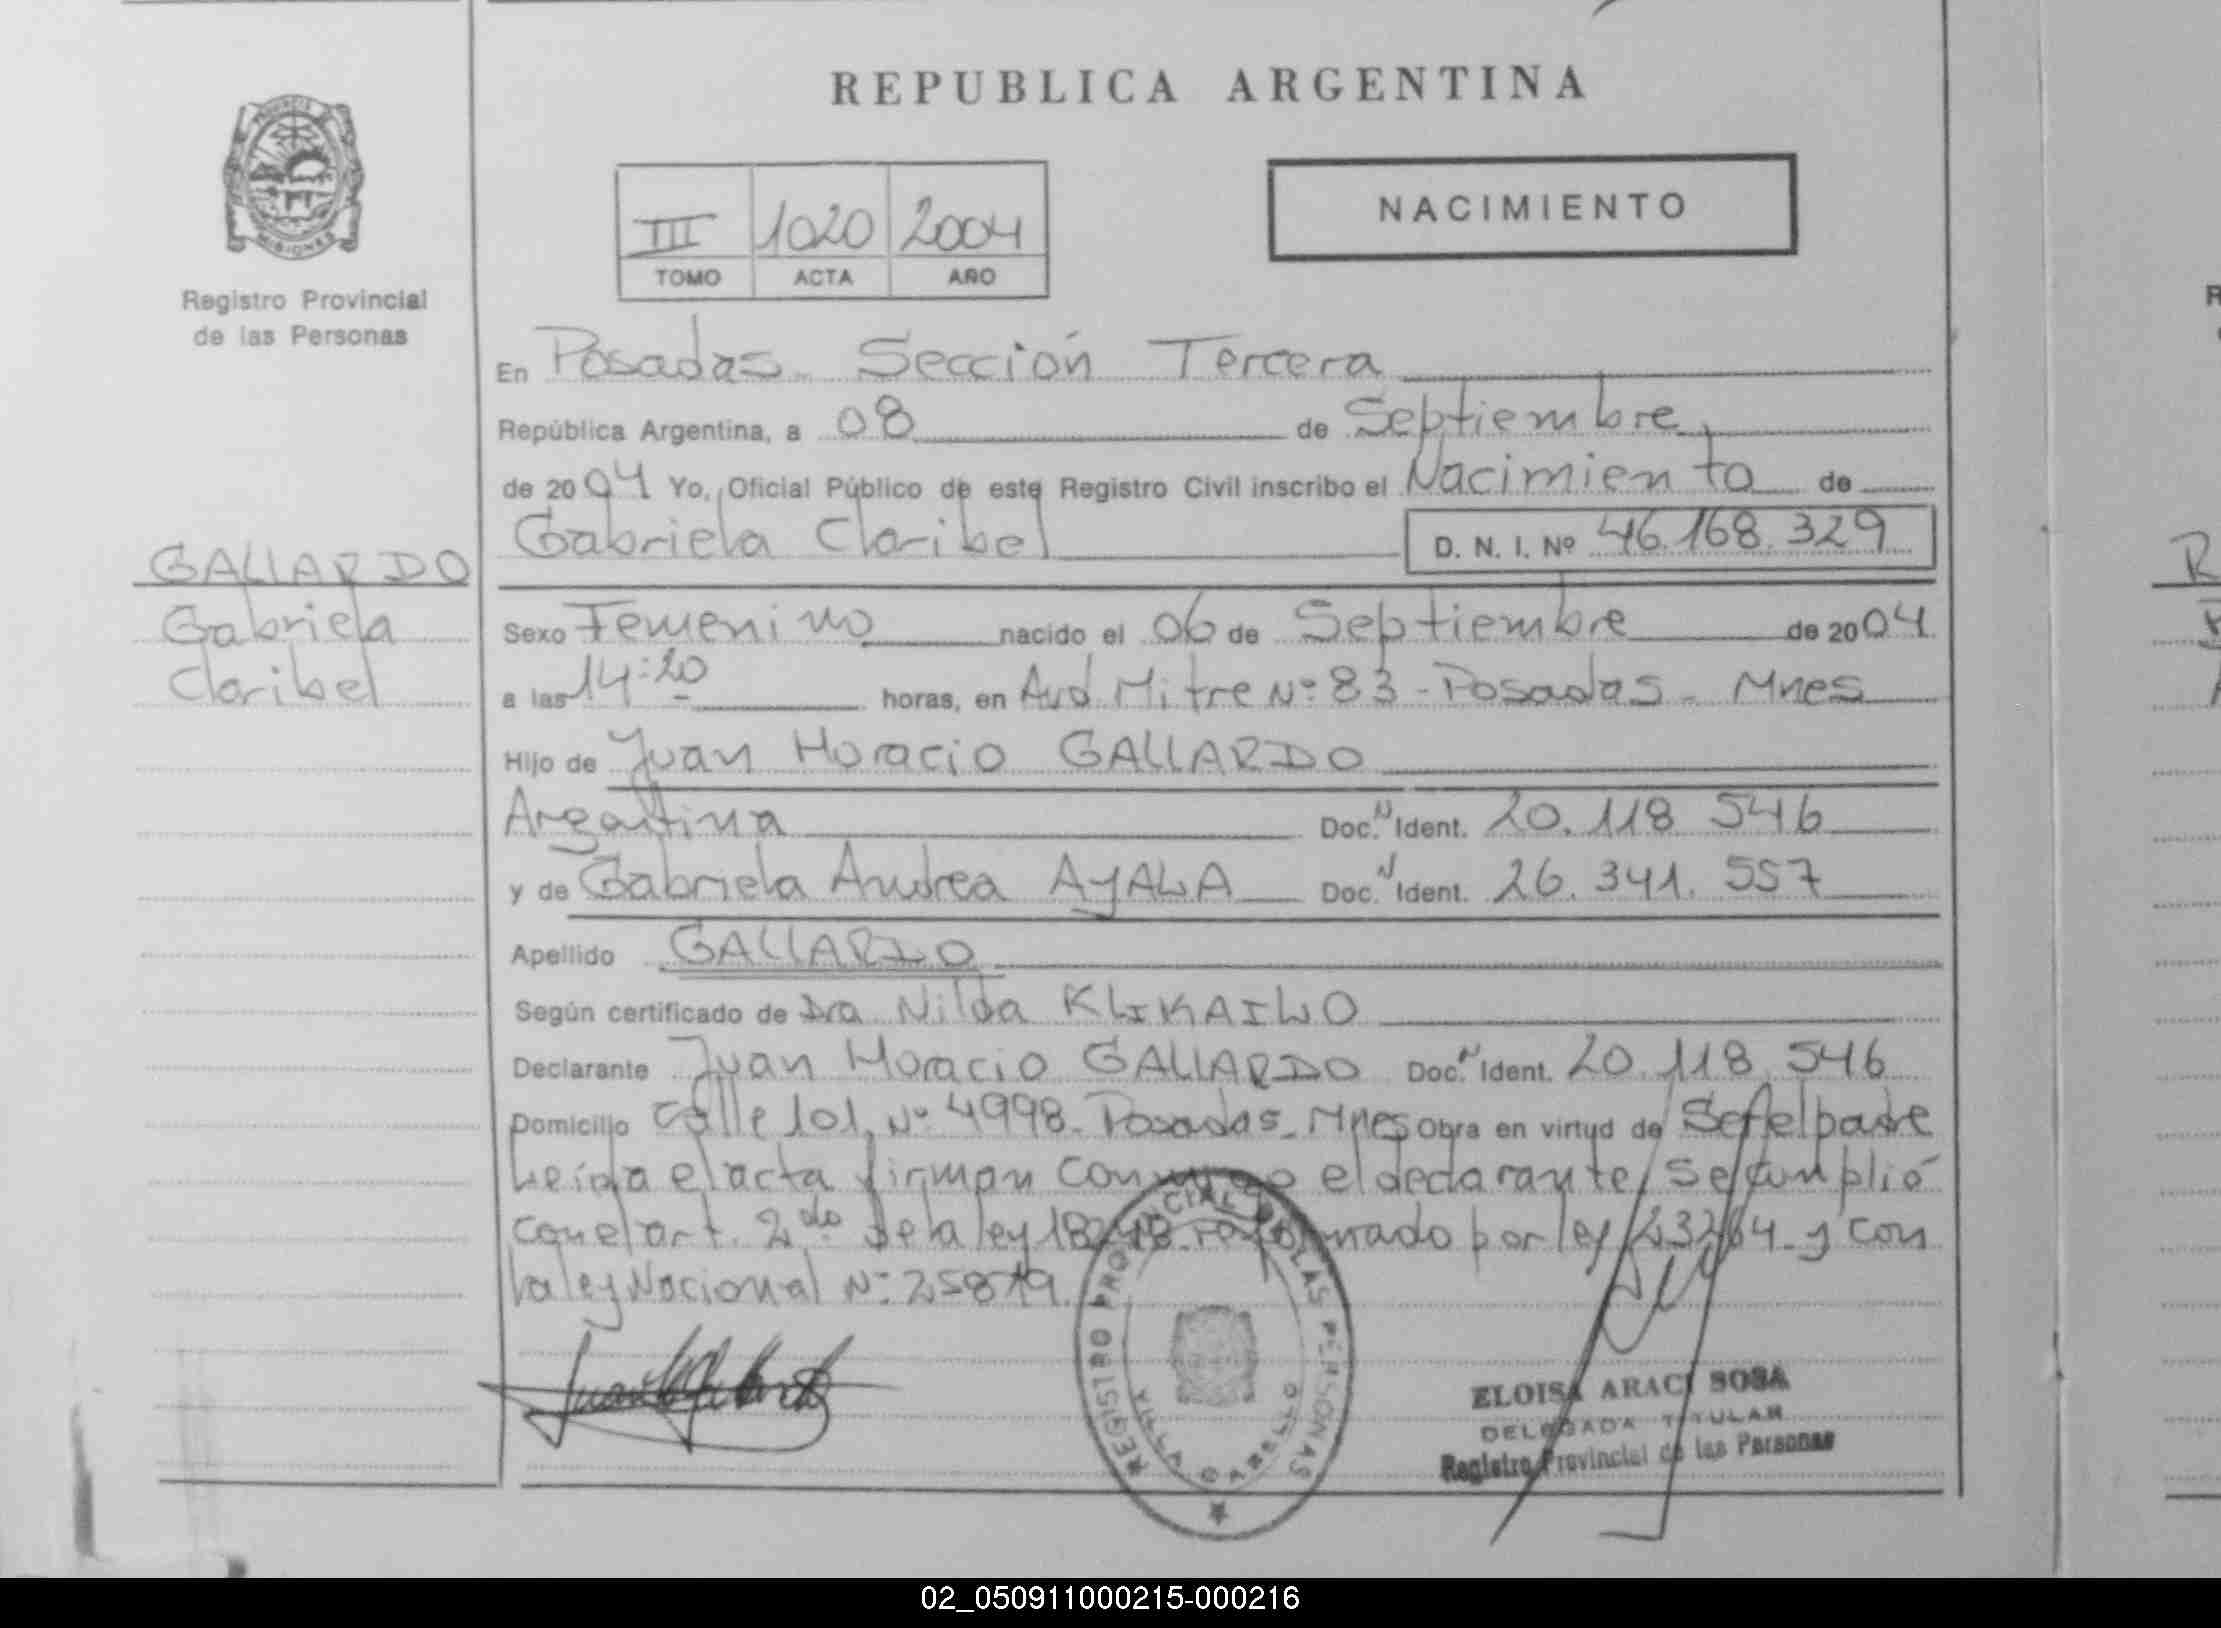 REPUBLICA ARGENTINA
PROVINCIA
MISIONES
Registro Provincial
de las Personas
III 1020 2004
TOMO ACTA AÑO
NACIMIENTO
En Posadas - Sección Tercera
República Argentina, a 08 de Septiembre
de 2004 Yo, Oficial Público de este Registro Civil inscribo el Nacimiento de
Gabriela Claribel D. N. I. Nº 46.168.329
GALLARDO
Gabriela
Claribel
Sexo Femenino nacido el 06 de Septiembre de 2004
a las 14:20 horas, en Avd Mitre Nº 83 - Posadas - Mnes
Hijo de Juan Horacio GALLARDO
Argentina Doc. N Ident. 20.118 546
y de Gabriela Andrea AYALA Doc. N Ident. 26.341.557
Apellido GALLARDO
Según certificado de Dra Nilda KLIKAILO
Declarante Juan Horacio GALLARDO Doc. N Ident. 20.118.546
Domicilio Calle 101 Nº 4998 - Posadas - Mnes Obra en virtud de Ser el padre
Leída el acta firman conmigo el declarante, Se cumplió
con el art. 2do de la ley 18248 reformado por ley 23264 y con
la ley Nacional Nº 25819.
REGISTRO PROVINCIAL DE LAS PERSONAS
VILLA CABELLO
ELOISA ARACI SOSA
DELEGADA TITULAR
Registro Provincial de las Personas
R
02_050911000215-000216